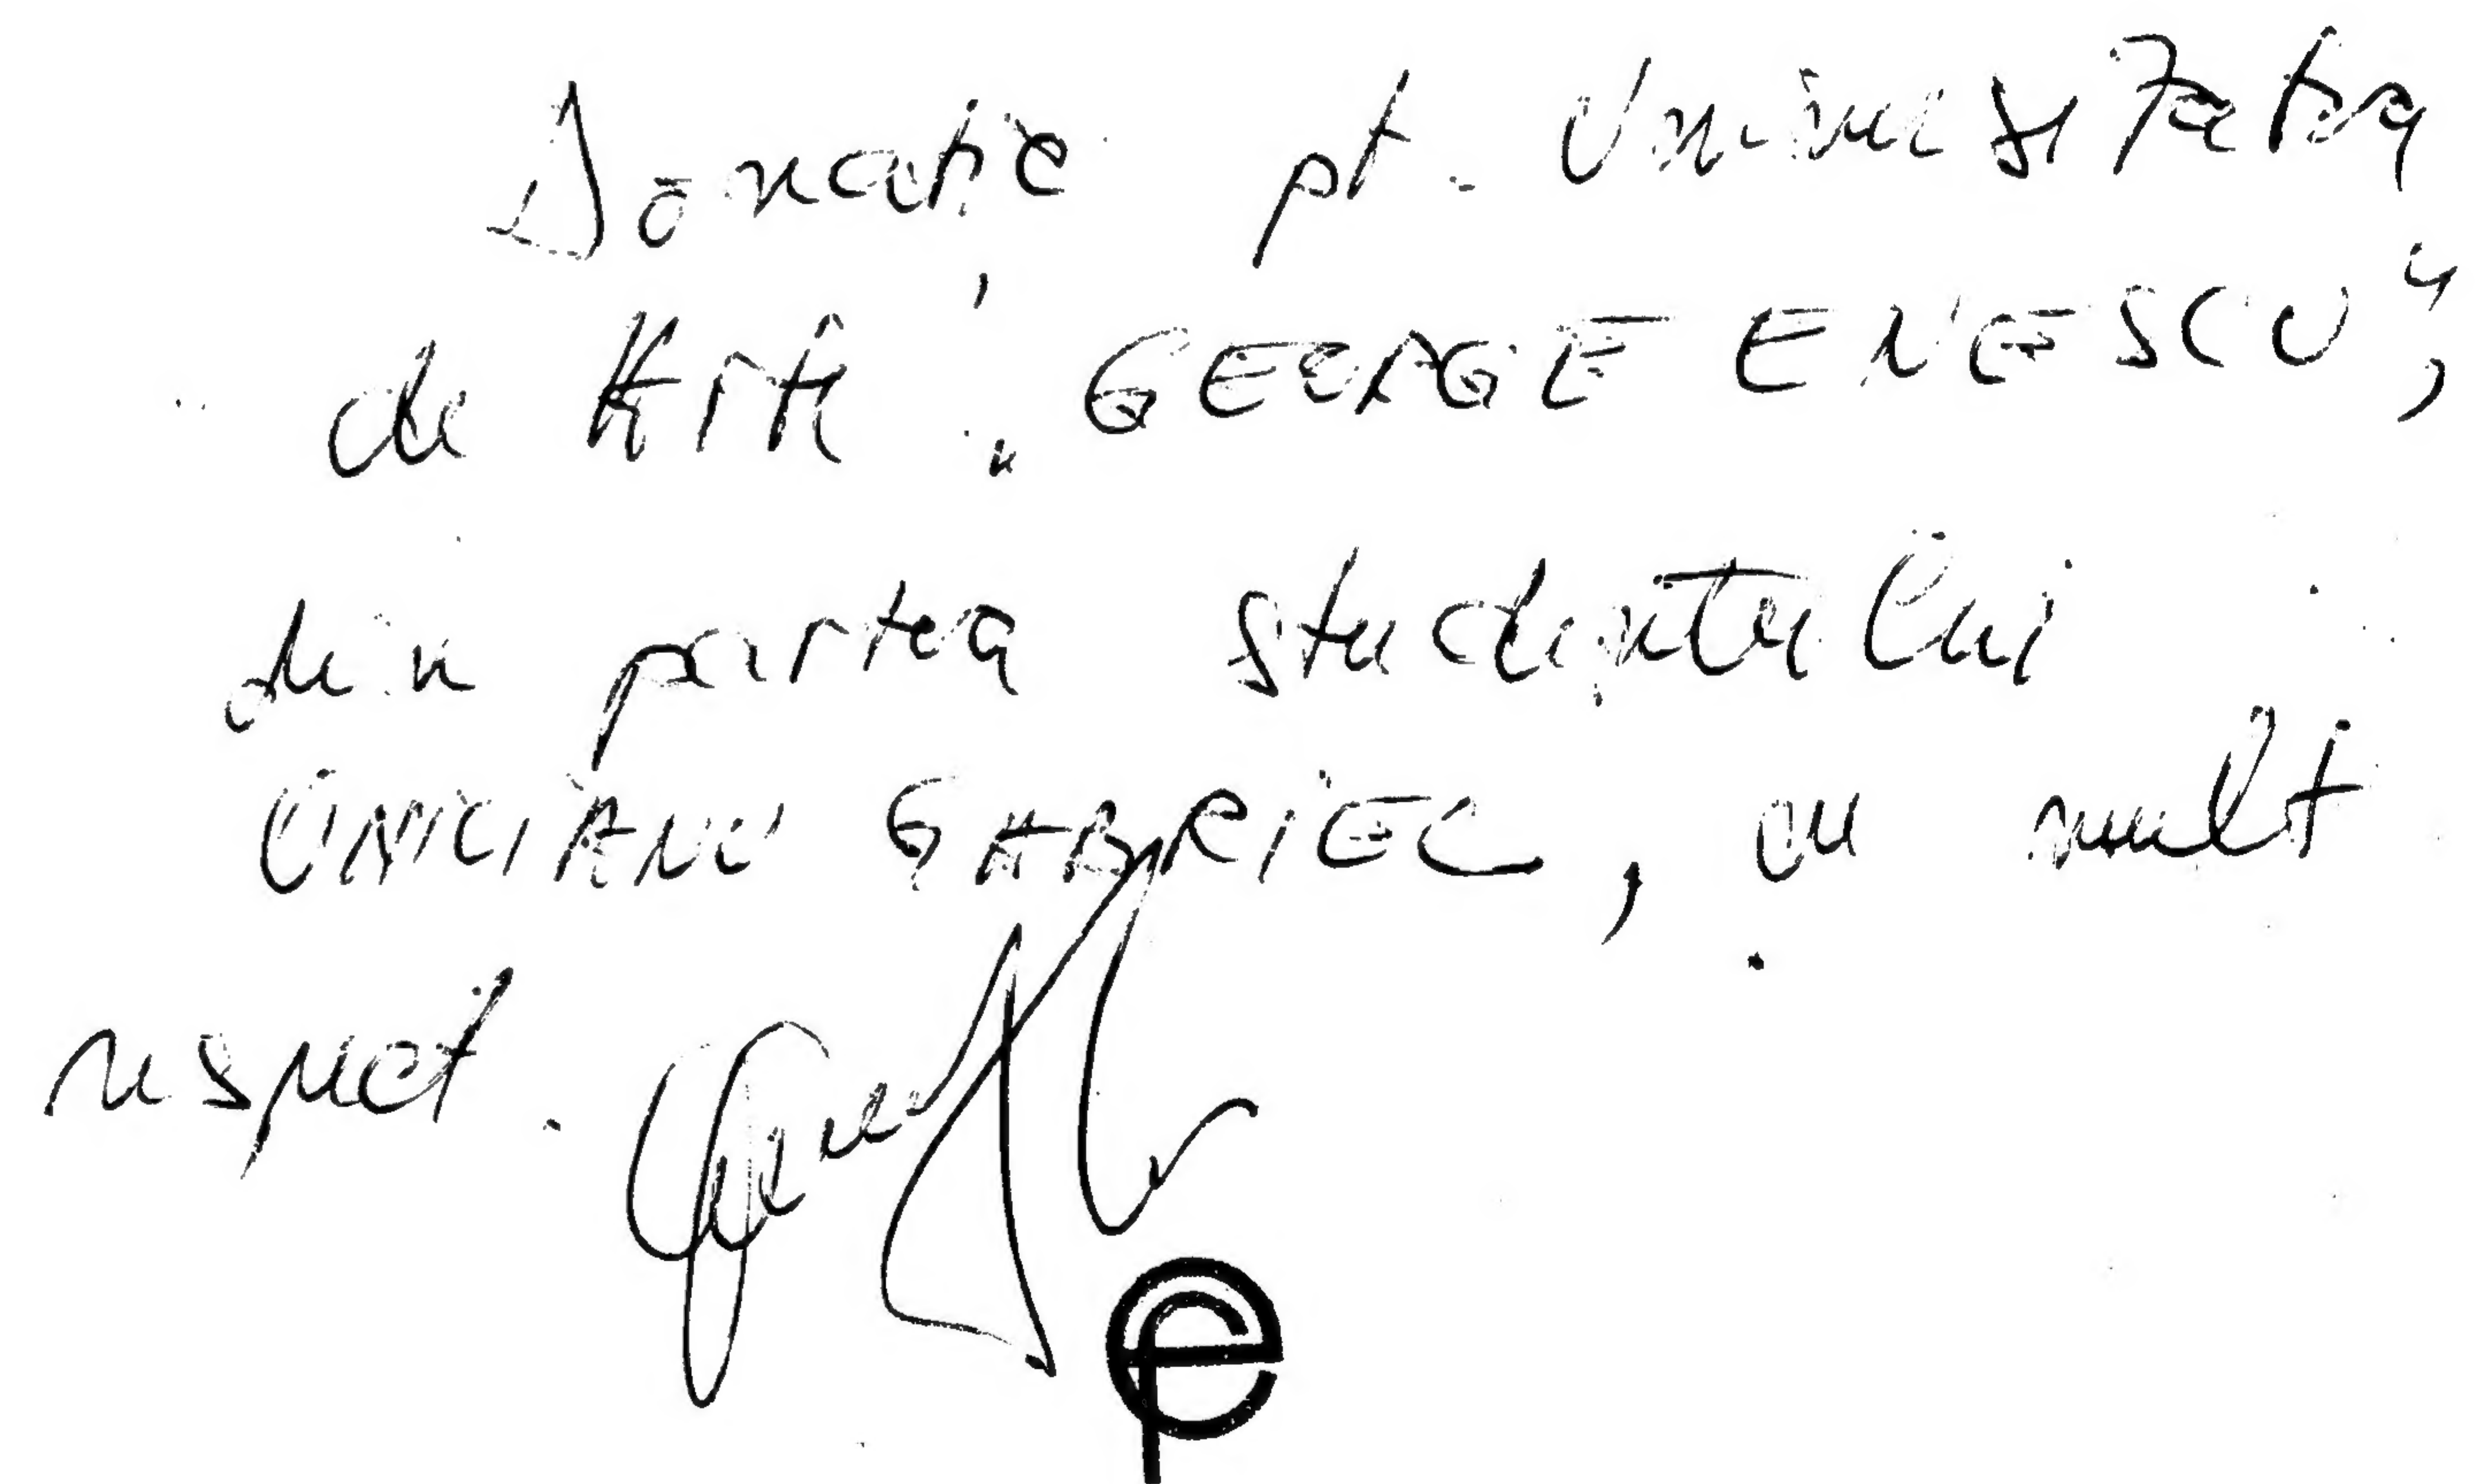 Donație pt. Universitatea
de Arte „GEORGE ENESCU”,
din partea studentului
GABRIEL, cu mult
respect.